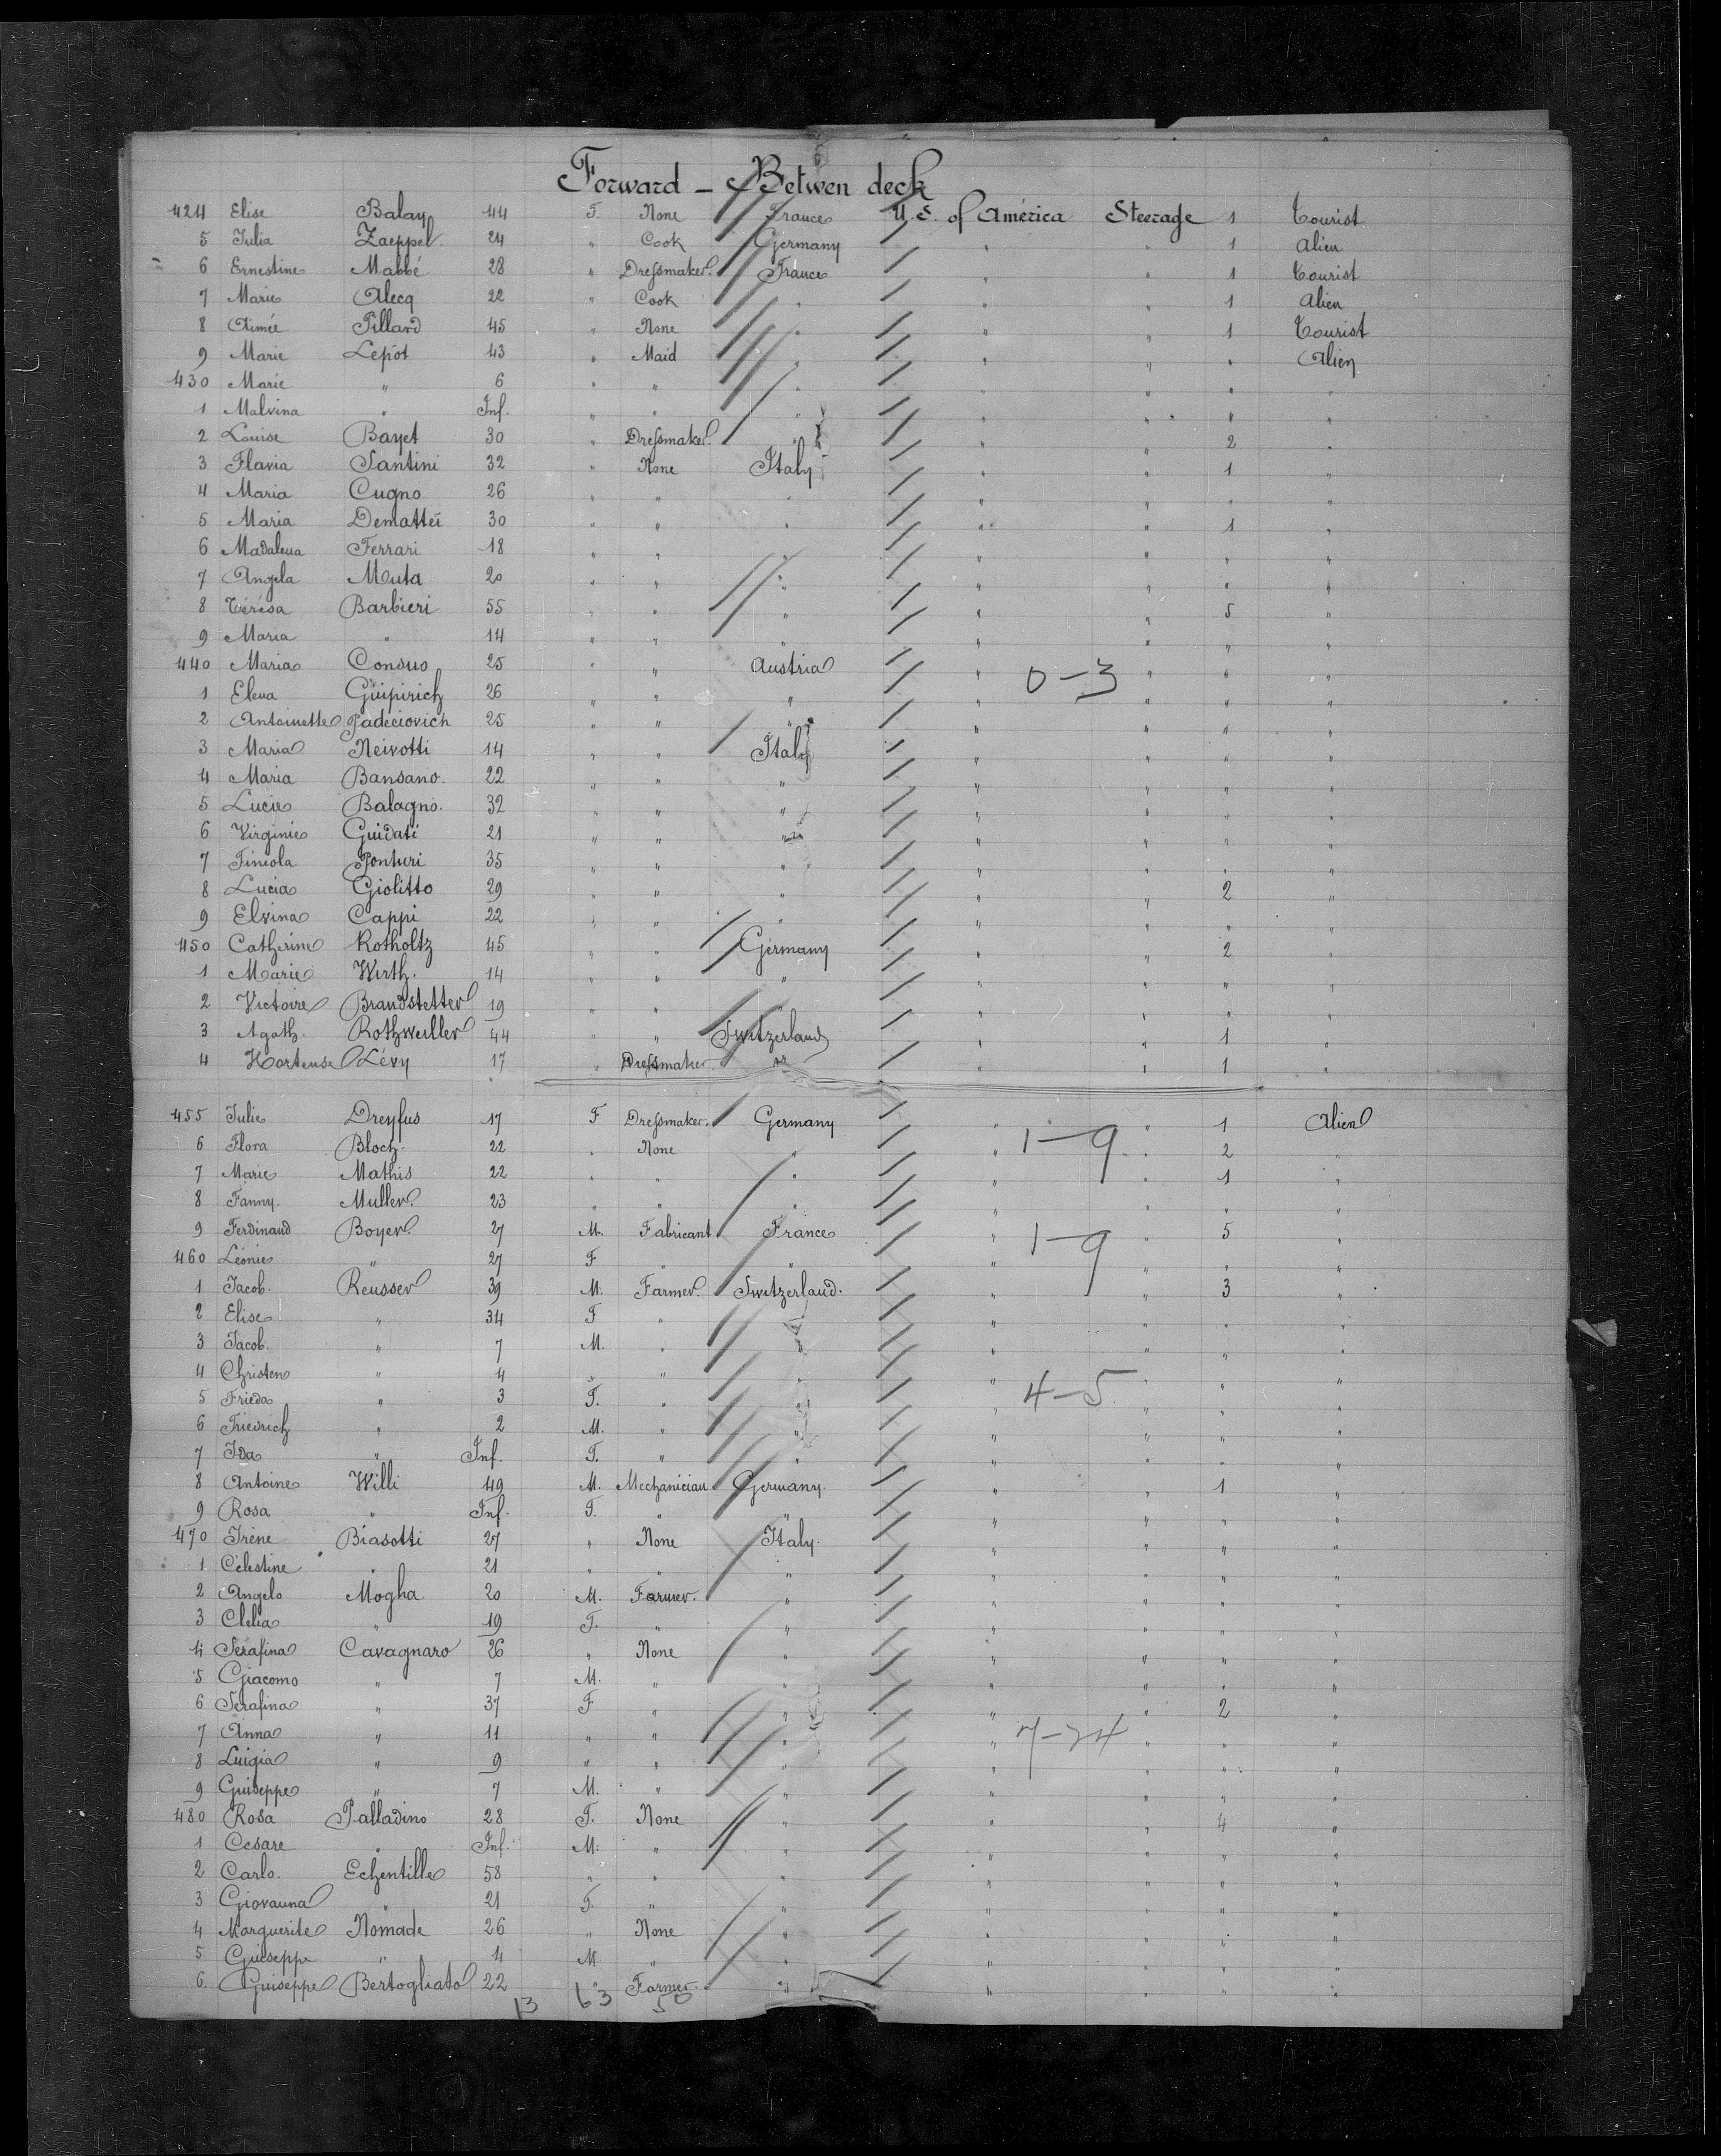 Forward - Betwen deck
424 Elise Balay 44 F. None France U.S. of América Steerage 1 Tourist
5 Julia Zaeppel 24 " Cook Germany " " 1 Alien
6 Ernestine Mabbé 28 " Dressmaker. France " " 1 Tourist
7 Marie Alecq 22 " Cook " " " 1 Alien
8 Aimée Pillard 45 " None " " " 1 Tourist
9 Marie Lepot 43 " Maid " " " " Alien
430 Marie " 6 " " " " " " "
1 Malvina " Inf. " " " " " " "
2 Louise Bayet 30 " Dressmaker. " " " 2 "
3 Flavia Santini 32 " None Italy " " 1 "
4 Maria Cugno 26 " " " " " " "
5 Maria Dematteï 30 " " " " " 1 "
6 Madalena Ferrari 18 " " " " " " "
7 Angela Muta 20 " " " " " " "
8 Térésa Barbieri 55 " " " " " 5 "
9 Maria " 14 " " " " " " "
440 Maria Consuo 25 " " Austria " 0-3 " " "
1 Elena Güipirich 26 " " " " " " "
2 Antoinette Padeciovich 25 " " " " " " "
3 Maria Neivotti 14 " " Italy " " " "
4 Maria Bansano. 22 " " " " " " "
5 Lucie Balagno. 32 " " " " " " "
6 Virginie Guidati 21 " " " " " " "
7 Finiola Ponturi 35 " " " " " " "
8 Lucia Giolitto 29 " " " " " 2 "
9 Elvina Cappi 22 " " " " " " "
450 Catherine Rotholtz 45 " " Germany " " 2 "
1 Marie Wirth. 14 " " " " " " "
2 Victoire Brandstetter 19 " " " " " " "
3 Agath. Rothweiller 44 " " Switzerland " " 1 "
4 Hortense Lévy 17 " Dressmaker " " " 1 "
455 Julie Dreyfus 17 F Dressmaker. Germany " " 1 Alien
6 Flora Bloch. 22 " None " " 1-9 " 2 "
7 Marie Mathis 22 " " " " " 1 "
8 Fanny. Muller. 23 " " " " " " "
9 Ferdinand Boyer. 27 M. Fabricant France " 1-9 " 5 "
460 Léonie " 27 F " " " " " "
1 Jacob. Reusser 39 M. Farmer. Switzerland. " " 3 "
2 Elise " 34 F " " " " " "
3 Jacob. " 7 M. " " " " " "
4 Christen " 4 " " " " " " "
5 Frieda " 3 F. " " " 4-5 " " "
6 Friedrich " 2 M. " " " " " "
7 Ida " Inf. F. " " " " " "
8 Antoine Willi 49 M. Mechanician Germany. " " 1 "
9 Rosa " Inf. F. " " " " " "
470 Irène Biasotti 27 " None Italy. " " " "
1 Célestine " 21 " " " " " " "
2 Angelo Mogha 20 M. Farmer. " " " " "
3 Clelia " 19 F. " " " " " "
4 Serafina Cavagnaro 26 " None " " " " "
5 Giacomo " 7 M. " " " " " "
6 Serafina " 37 F " " " " 2 "
7 Anna " 11 " " " " 7-24 " " "
8 Luigia " 9 " " " " " " "
9 Guiseppe " 7 M. " " " " " "
480 Rosa Palladino 28 F. None " " " 4 "
1 Cesare " Inf. M. " " " " " "
2 Carlo. Echentille 58 " " " " " " "
3 Giovanna " 21 F. " " " " " "
4 Marguerite Nomade 26 " None " " " " "
5 Guiseppe " 4 M. " " " " " "
6. Guiseppe Bertogliato 22 " Farmer. " " " " "
13 63 50